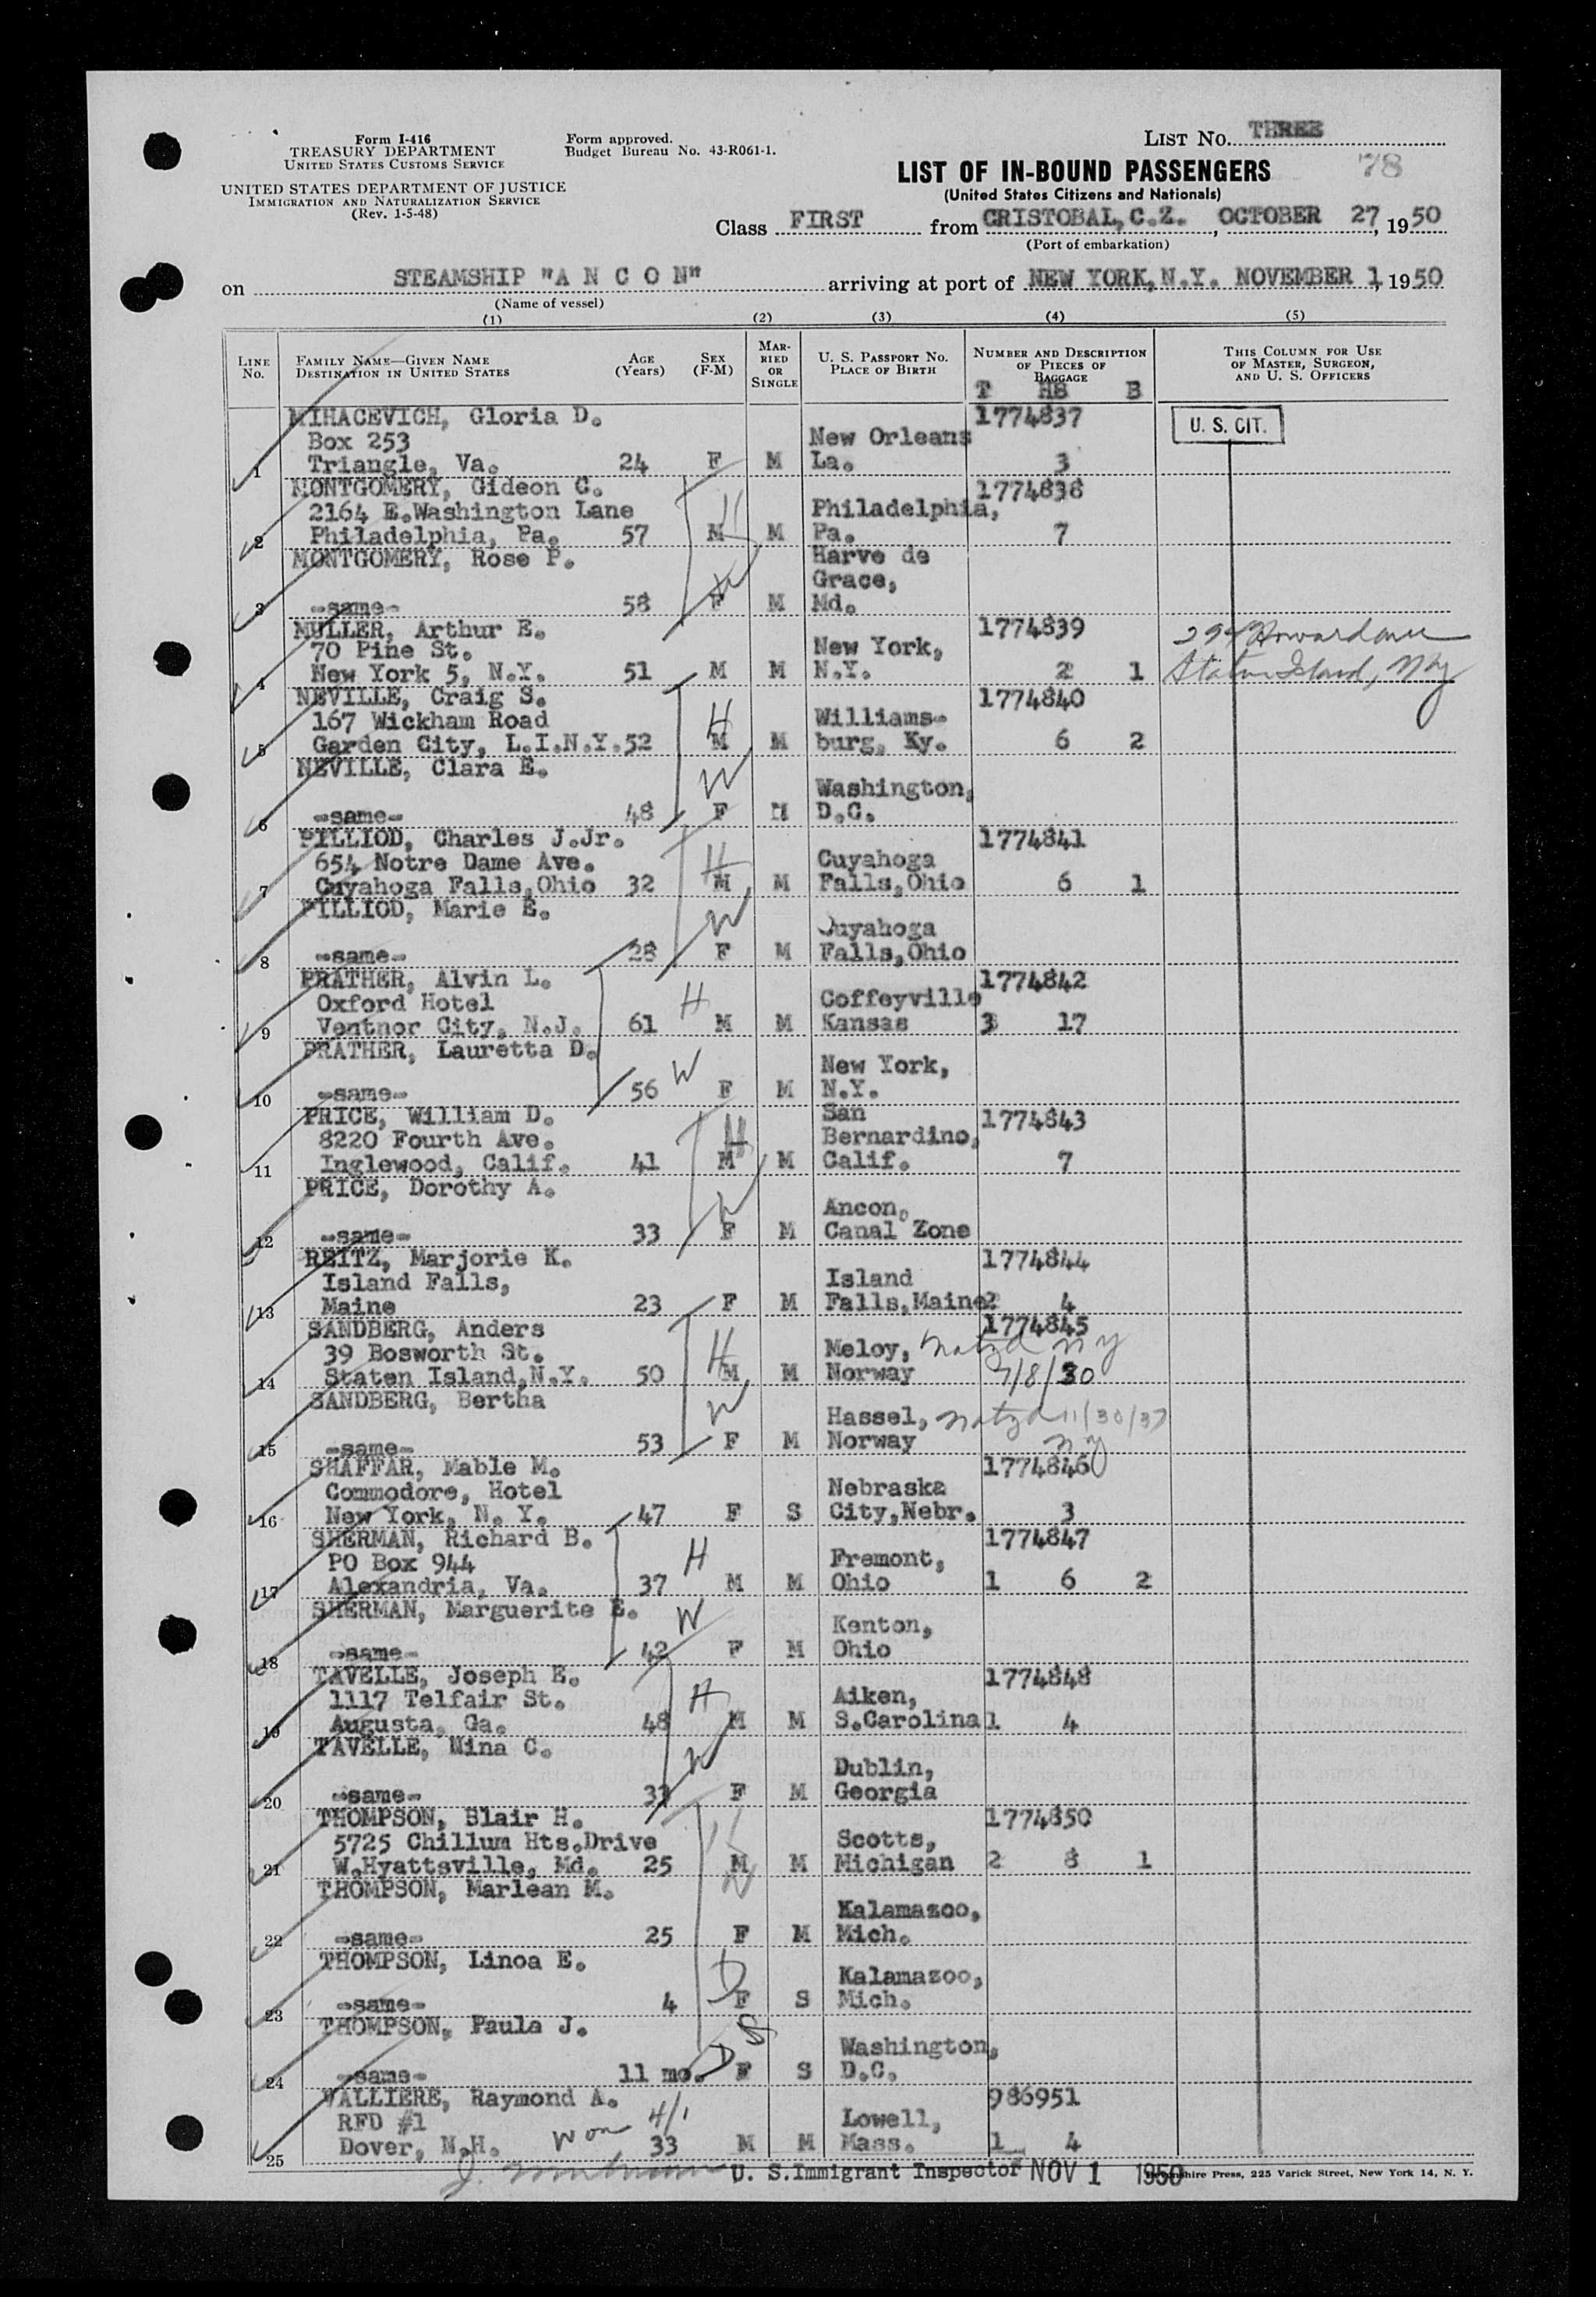 Form I-416
TREASURY DEPARTMENT
UNITED STATES CUSTOMS SERVICE
UNITED STATES DEPARTMENT OF JUSTICE
IMMIGRATION AND NATURALIZATION SERVICE
(Rev. 1-5-48)
Form approved.
Budget Bureau No. 43-R061-1.
LIST NO. THREE
LIST OF IN-BOUND PASSENGERS 78
(United States Citizens and Nationals)
Class FIRST from CRISTOBAL, C.Z. , OCTOBER 27, 1950
(Port of embarkation)
on STEAMSHIP "A N C O N" arriving at port of NEW YORK, N.Y. NOVEMBER 1, 1950
(Name of vessel)
(1) (2) (3) (4) (5)
LINE NO.
FAMILY NAME—GIVEN NAME
DESTINATION IN UNITED STATES
AGE (Years)
SEX (F-M)
MARRIED OR SINGLE
U. S. PASSPORT NO.
PLACE OF BIRTH
NUMBER AND DESCRIPTION OF PIECES OF BAGGAGE
T HB B
THIS COLUMN FOR USE OF MASTER, SURGEON, AND U. S. OFFICERS
MIHACEVICH, Gloria D. 1774837 U. S. CIT.
Box 253 New Orleans
1 Triangle, Va. 24 F M La. 3
MONTGOMERY, Gideon C. 1774838
2164 E.Washington Lane Philadelphia,
2 Philadelphia, Pa. 57 M M Pa. 7
MONTGOMERY, Rose P. Harve de
Grace,
3 -same- 58 F M Md.
MULLER, Arthur E. 1774839
70 Pine St. New York,
4 New York 5, N.Y. 51 M M N.Y. 2 1 Staten Island, NY
NEVILLE, Craig S. 1774840
167 Wickham Road H Williams-
5 Garden City, L.I.N.Y. 52 M M burg, Ky. 6 2
NEVILLE, Clara E. W
Washington,
6 -same- 48 F M D.C.
PILLIOD, Charles J.Jr. 1774841
654 Notre Dame Ave. H Cuyahoga
7 Cuyahoga Falls,Ohio 32 M M Falls,Ohio 6 1
PILLIOD, Marie E. W
Cuyahoga
8 -same- 28 F M Falls,Ohio
PRATHER, Alvin L. 1774842
Oxford Hotel H Coffeyville
9 Ventnor City, N.J. 61 M M Kansas 3 17
PRATHER, Lauretta D. W
New York,
10 -same- 56 F M N.Y.
PRICE, William D. San 1774843
8220 Fourth Ave. H Bernardino,
11 Inglewood, Calif. 41 M M Calif. 7
PRICE, Dorothy A. W
Ancon,
12 -same- 33 F M Canal Zone
REITZ, Marjorie K. 1774844
Island Falls, Island
13 Maine 23 F M Falls,Maine 2 4
SANDBERG, Anders 1774845
39 Bosworth St. H Meloy, Natzd NY
14 Staten Island,N.Y. 50 M M Norway 7/8/30
SANDBERG, Bertha W
Hassel, Natzd 11/30/37
15 -same- 53 F M Norway NY
SHAFFAR, Mable M. 1774846
Commodore, Hotel Nebraska
16 New York, N. Y. 47 F S City,Nebr. 3
SHERMAN, Richard B. 1774847
PO Box 944 H Fremont,
17 Alexandria, Va. 37 M M Ohio 1 6 2
SHERMAN, Marguerite E. W
Kenton,
18 -same- 42 F M Ohio
TAVELLE, Joseph E. 1774848
1117 Telfair St. H Aiken,
19 Augusta, Ga. 48 M M S.Carolina 1 4
TAVELLE, Mina C. W
Dublin,
20 -same- F M Georgia
THOMPSON, Blair H. 1774850
5725 Chillum Hts.Drive H Scotts,
21 W.Hyattsville, Md. 25 M M Michigan 2 8 1
THOMPSON, Marlean M. W
Kalamazoo,
22 -same- 25 F M Mich.
THOMPSON, Linoa E.
D Kalamazoo,
23 -same- 4 F S Mich.
THOMPSON, Paula J.
Washington,
24 -same- 11 mo. D F S D.C.
VALLIERE, Raymond A. 986951
RFD #1 4/1 Lowell,
25 Dover, N.H. 33 M M Mass. 1 4
U. S. Immigrant Inspector NOV 1 1950 Press, 225 Varick Street, New York 14, N. Y.